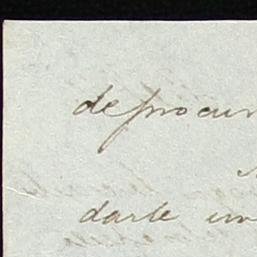 de procur
darle un